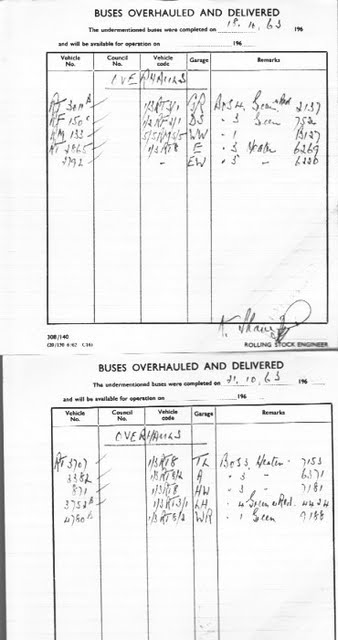 BUSES OVERHAULED AND DELIVERED
The undermentioned buses were completed on 18.10.63 196
and will be available for operation on 196
Vehicle No. Council No. Vehicle code Garage Remarks
OVERHAULS
1/3RT3/1 GR 2137
RF 150 1/2RF2/1 DS 3 752
RM 133 5/5RM5/5 WW 1
RT 2865 1/3RT8 E 3 Heater 6269
2792 - EW 3 - 6220
308/140
ROLLING STOCK ENGINEER
BUSES OVERHAULED AND DELIVERED
The undermentioned buses were completed on 21.10.63 196
and will be available for operation on 196
Vehicle No. Council No. Vehicle code Garage Remarks
OVERHAULS
RT 3707 1/3RT8 TL Bo S3 Heater 7153
3382 1/3RT8/2 A 3 6371
871 1/3RT8 HW 7181
3752 1/3RT3/1 LH 4 4424
4780 1/3RT8/2 WR 1 7188